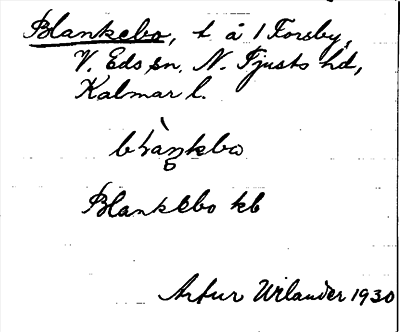 Blankebo, t. å 1 Forsby,
V. Eds sn. N. Tjusts hd,
Kalmar l.
Blankebo kb
Artur Wilander 1930